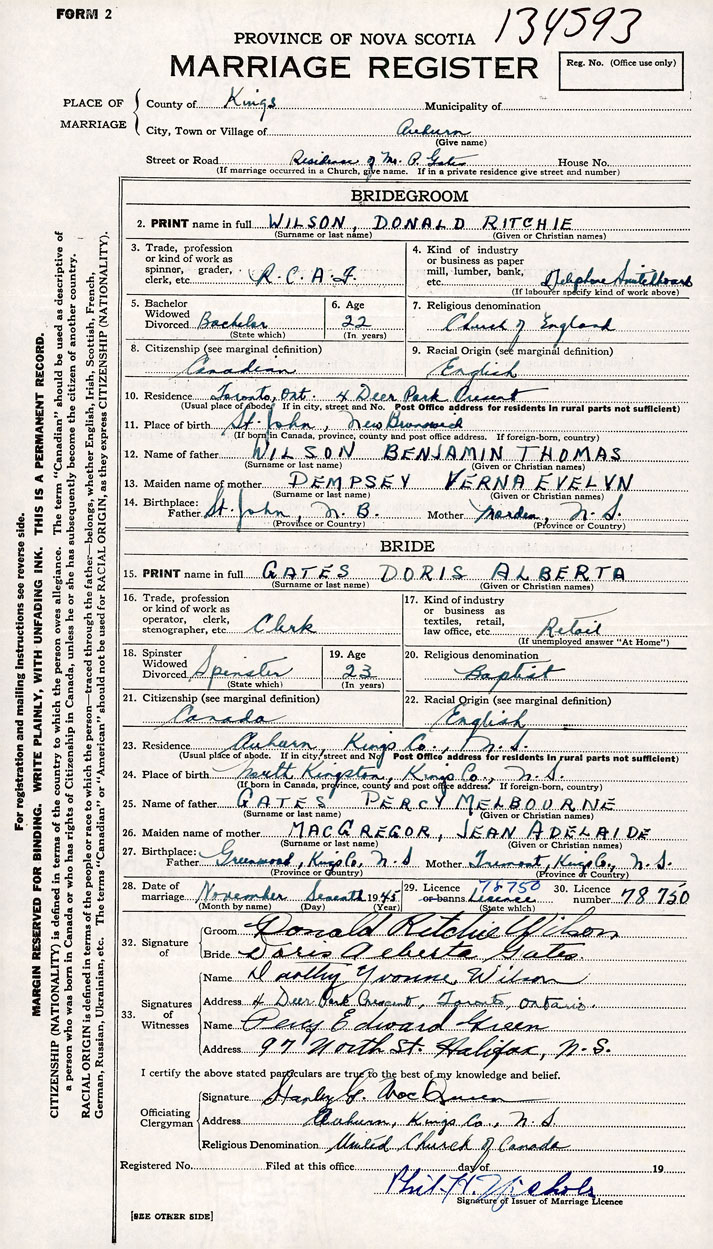 FORM 2
134593
PROVINCE OF NOVA SCOTIA
MARRIAGE REGISTER
Reg. No. (Office use only)
PLACE OF MARRIAGE
County of Kings Municipality of
City, Town or Village of Auburn
(Give name)
Street or Road Residence of Mr. P. Gates House No.
(If marriage occurred in a Church, give name. If in a private residence give street and number)
BRIDEGROOM
2. PRINT name in full WILSON, DONALD RITCHIE
(Surname or last name) (Given or Christian names)
3. Trade, profession or kind of work as spinner, grader, clerk, etc. R.C.A.F.
4. Kind of industry or business as paper mill, lumber, bank, etc.
(If labourer specify kind of work above)
5. Bachelor Widowed Divorced Bachelor
(State which)
6. Age 22
(In years)
7. Religious denomination
Church of England
8. Citizenship (see marginal definition)
Canadian
9. Racial Origin (see marginal definition)
English
10. Residence Toronto, Ont. 4 Deer Park Cresent
(Usual place of abode. If in city, street and No. Post Office address for residents in rural parts not sufficient)
11. Place of birth St. John, New Brunswick
(If born in Canada, province, county and post office address. If foreign-born, country)
12. Name of father WILSON BENJAMIN THOMAS
(Surname or last name) (Given or Christian names)
13. Maiden name of mother DEMPSEY VERNA EVELYN
(Surname or last name) (Given or Christian names)
14. Birthplace: Father St. John, N. B. Mother N. S.
(Province or Country) (Province or Country)
BRIDE
15. PRINT name in full GATES DORIS ALBERTA
(Surname or last name) (Given or Christian names)
16. Trade, profession or kind of work as operator, clerk, stenographer, etc. Clerk
17. Kind of industry or business as textiles, retail, law office, etc. Retail
(If unemployed answer "At Home")
18. Spinster Widowed Divorced Spinster
(State which)
19. Age 23
(In years)
20. Religious denomination
Baptist
21. Citizenship (see marginal definition)
Canada
22. Racial Origin (see marginal definition)
English
23. Residence Auburn, Kings Co., N. S.
(Usual place of abode. If in city, street and No. Post Office address for residents in rural parts not sufficient)
24. Place of birth North Kingston, Kings Co., N. S.
(If born in Canada, province, county and post office address. If foreign-born, country)
25. Name of father GATES PERCY MELBOURNE
(Surname or last name) (Given or Christian names)
26. Maiden name of mother MACGREGOR, JEAN ADELAIDE
(Surname or last name) (Given or Christian names)
27. Birthplace: Father Greenwood, Kings Co., N. S Mother Tremont, Kings Co., N. S.
(Province or Country) (Province or Country)
28. Date of marriage November Seventh 1945
(Month by name) (Day) (Year)
29. Licence or banns 78750 Licence
(State which)
30. Licence number 78750
32. Signature of
Groom Donald Ritchie Wilson
Bride Doris Alberta Gates
33. Signatures of Witnesses
Name Dorothy Yvonne Wilson
Address 4 Deer Park Crescent, Toronto, Ontario.
Name Percy Edward Green
Address 97 North St. Halifax, N. S.
I certify the above stated particulars are true to the best of my knowledge and belief.
Officiating Clergyman
Signature Stanley G. MacQueen
Address Auburn, Kings Co., N. S.
Religious Denomination United Church of Canada
Registered No. Filed at this office day of 19
Phil H. Nichols
Signature of Issuer of Marriage Licence
[SEE OTHER SIDE]
For registration and mailing instructions see reverse side.
MARGIN RESERVED FOR BINDING. WRITE PLAINLY, WITH UNFADING INK. THIS IS A PERMANENT RECORD.
CITIZENSHIP (NATIONALITY) is defined in terms of the country to which the person owes allegiance. The term "Canadian" should be used as descriptive of
a person who was born in Canada or who has rights of Citizenship in Canada, unless he or she has subsequently become the citizen of another country.
RACIAL ORIGIN is defined in terms of the people or race to which the person—traced through the father—belongs, whether English, Irish, Scottish, French,
German, Russian, Ukrainian, etc. The terms "Canadian" or "American" should not be used for RACIAL ORIGIN, as they express CITIZENSHIP (NATIONALITY).